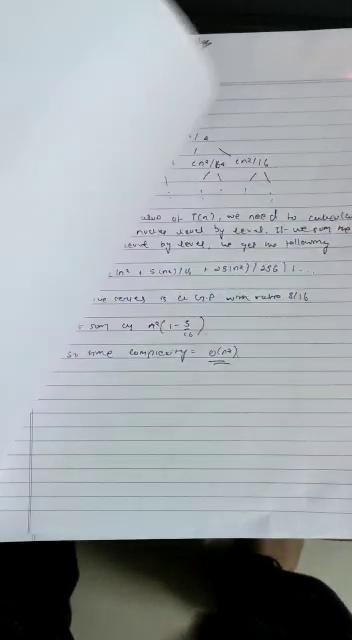 cn²/64 cn2/16
of T(n), we need to calculate
level by level. If we sum the
level by level, we get the following
+ 5(n²)/16 + 25(n²)/256) + ....
series is a G.P with ratio 5/16
sum n²(1 - 5/16)
So time complexity = O(n²)